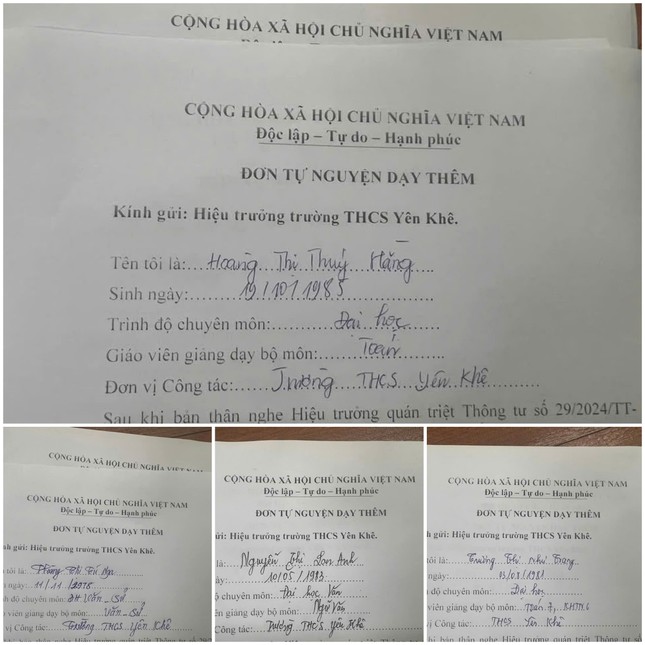 CỘNG HÒA XÃ HỘI CHỦ NGHĨA VIỆT NAM
CỘNG HÒA XÃ HỘI CHỦ NGHĨA VIỆT NAM
Độc lập – Tự do – Hạnh phúc
ĐƠN TỰ NGUYỆN DẠY THÊM
Kính gửi: Hiệu trưởng trường THCS Yên Khê.
Tên tôi là: Hoàng Thị Thuý Hằng
Sinh ngày: 19/10/1985
Trình độ chuyên môn: Đại học
Giáo viên giảng dạy bộ môn: Toán
Đơn vị Công tác: Trường THCS Yên Khê
Sau khi bản thân nghe Hiệu trưởng quán triệt Thông tư số 29/2024/TT-
CỘNG HÒA XÃ HỘI CHỦ NGHĨA VIỆT NAM
CỘNG HÒA XÃ HỘI CHỦ NGHĨA VIỆT NAM
Độc lập – Tự do – Hạnh phúc
ĐƠN TỰ NGUYỆN DẠY THÊM
nh gửi: Hiệu trưởng trường THCS Yên Khê.
n tôi là: Phùng Thị Tú
ngày: 11/11
độ chuyên môn: ĐH Văn - Sử
viên giảng dạy bộ môn: Văn - Sử
Công tác: Trường THCS Yên Khê
CỘNG HÒA XÃ HỘI CHỦ NGHĨA VIỆT NAM
Độc lập – Tự do – Hạnh phúc
ĐƠN TỰ NGUYỆN DẠY THÊM
gửi: Hiệu trưởng trường THCS Yên Khê.
là: Nguyễn Thị Lan Anh
ngày: 10/05/1983
chuyên môn: Đại học Văn
giảng dạy bộ môn: Ngữ Văn
Công tác: Trường THCS Yên Khê
CỘNG HÒA XÃ HỘI CHỦ NGHĨA VIỆT NAM
Độc lập – Tự do – Hạnh phúc
ĐƠN TỰ NGUYỆN DẠY THÊM
gửi: Hiệu trưởng trường THCS Yên Khê.
tôi là: Trương Thị Như Trang
ngày: 03/08/1981
độ chuyên môn: Đại học
viên giảng dạy bộ môn: Toán 7, KHTN6
Công tác: THCS Yên Khê